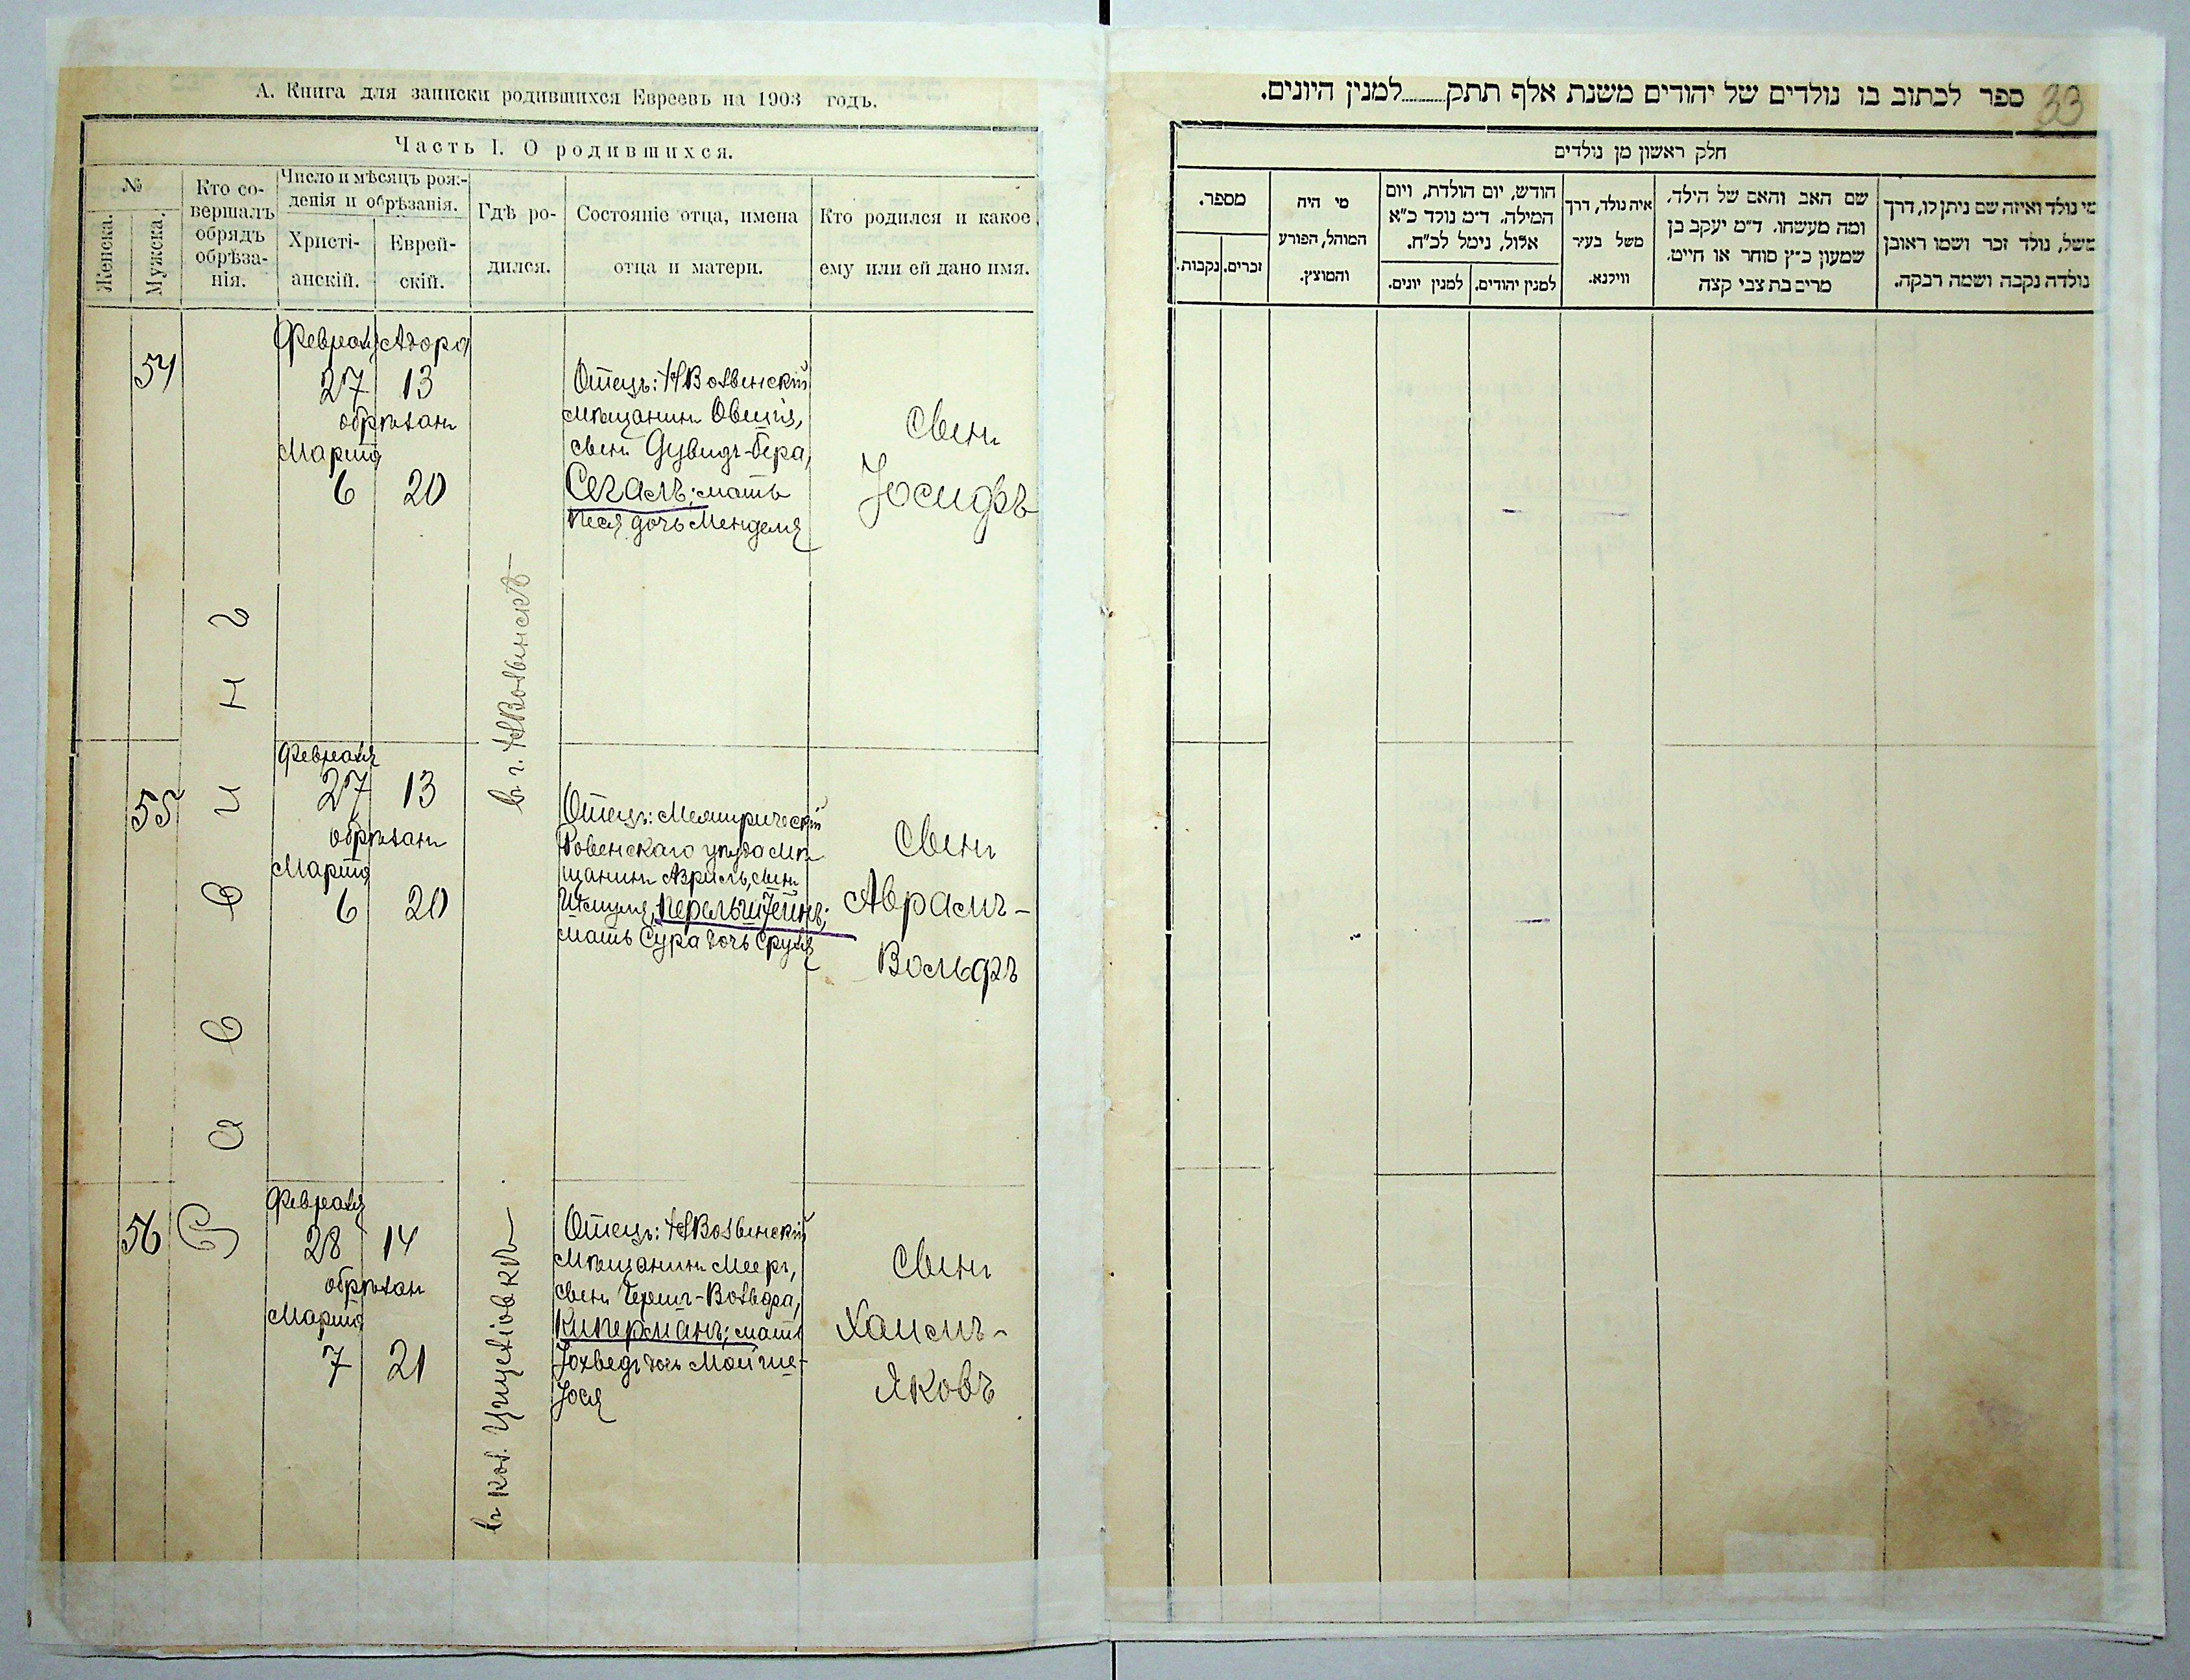 А. Книга для записки родившихся Евреевъ на 1903 годъ.
Часть I. О родившихся.
№
Женска.
Мужска.
Кто со-
вершалъ
обрядъ
обрѣза-
нія.
Число и мѣсяцъ рож-
денія и обрѣзанія.
Христі-
анскій.
Еврей-
скій.
Гдѣ ро-
дился.
Состояніе отца, имена
отца и матери.
Кто родился и какое
ему или ей дано имя.
54
Февраля Адора
27 13
обрѣзан
Марта
6 20
Отецъ: НВолынскій
мѣщанинъ Овшія,
сынъ Дувидъ-Бера,
Сегалъ; мать
Песя дочь Менделя
Сынъ
Іосифъ
въ г. НВолынскѣ
55
Февраля
27 13
обрѣзан
Марта
6 20
Отецъ: Межирическій
Ровенскаго уѣзда мѣ
щанинъ Азриль, сынъ
Шмуля, Перельштейнъ;
мать Сура дочь Сруля
Сынъ
Аврамъ-
Вольфъ
56
Февраля
28 14
обрѣзан
Марта
7 21
Отецъ: НВолынскій
Мѣщанинъ Мееръ,
сынъ Гершъ-Вольфа,
Киперманъ; мать
Іохведъ дочь Мойше-
Іося
Сынъ
Хаимъ-
Яковъ
33
ספר לכתוב בו נולדים של יהודים משנת אלף תתק........למנין היונים.
חלק ראשון מן נולדים
מי נולד ואיזה שם ניתן לו, דרך
משל, נולד זכר ושמו ראובן
נולדה נקבה ושמה רבקה.
שם האב והאם של הילד,
ומה מעשהו. ד״מ יעקב בן
שמעון כ״ץ סוחר או חייט,
מרים בת צבי קצה
איה נולד, דרך
משל בעיר
ווילנא.
חודש, יום הולדת, ויום
המילה. ד״מ נולד כ״א
אלול, נימל לכ״ח.
למנין יהודים.
למנין יונים.
מי היה
המוהל, הפורע
והמוצץ.
מספר.
זכרים.
נקבות.